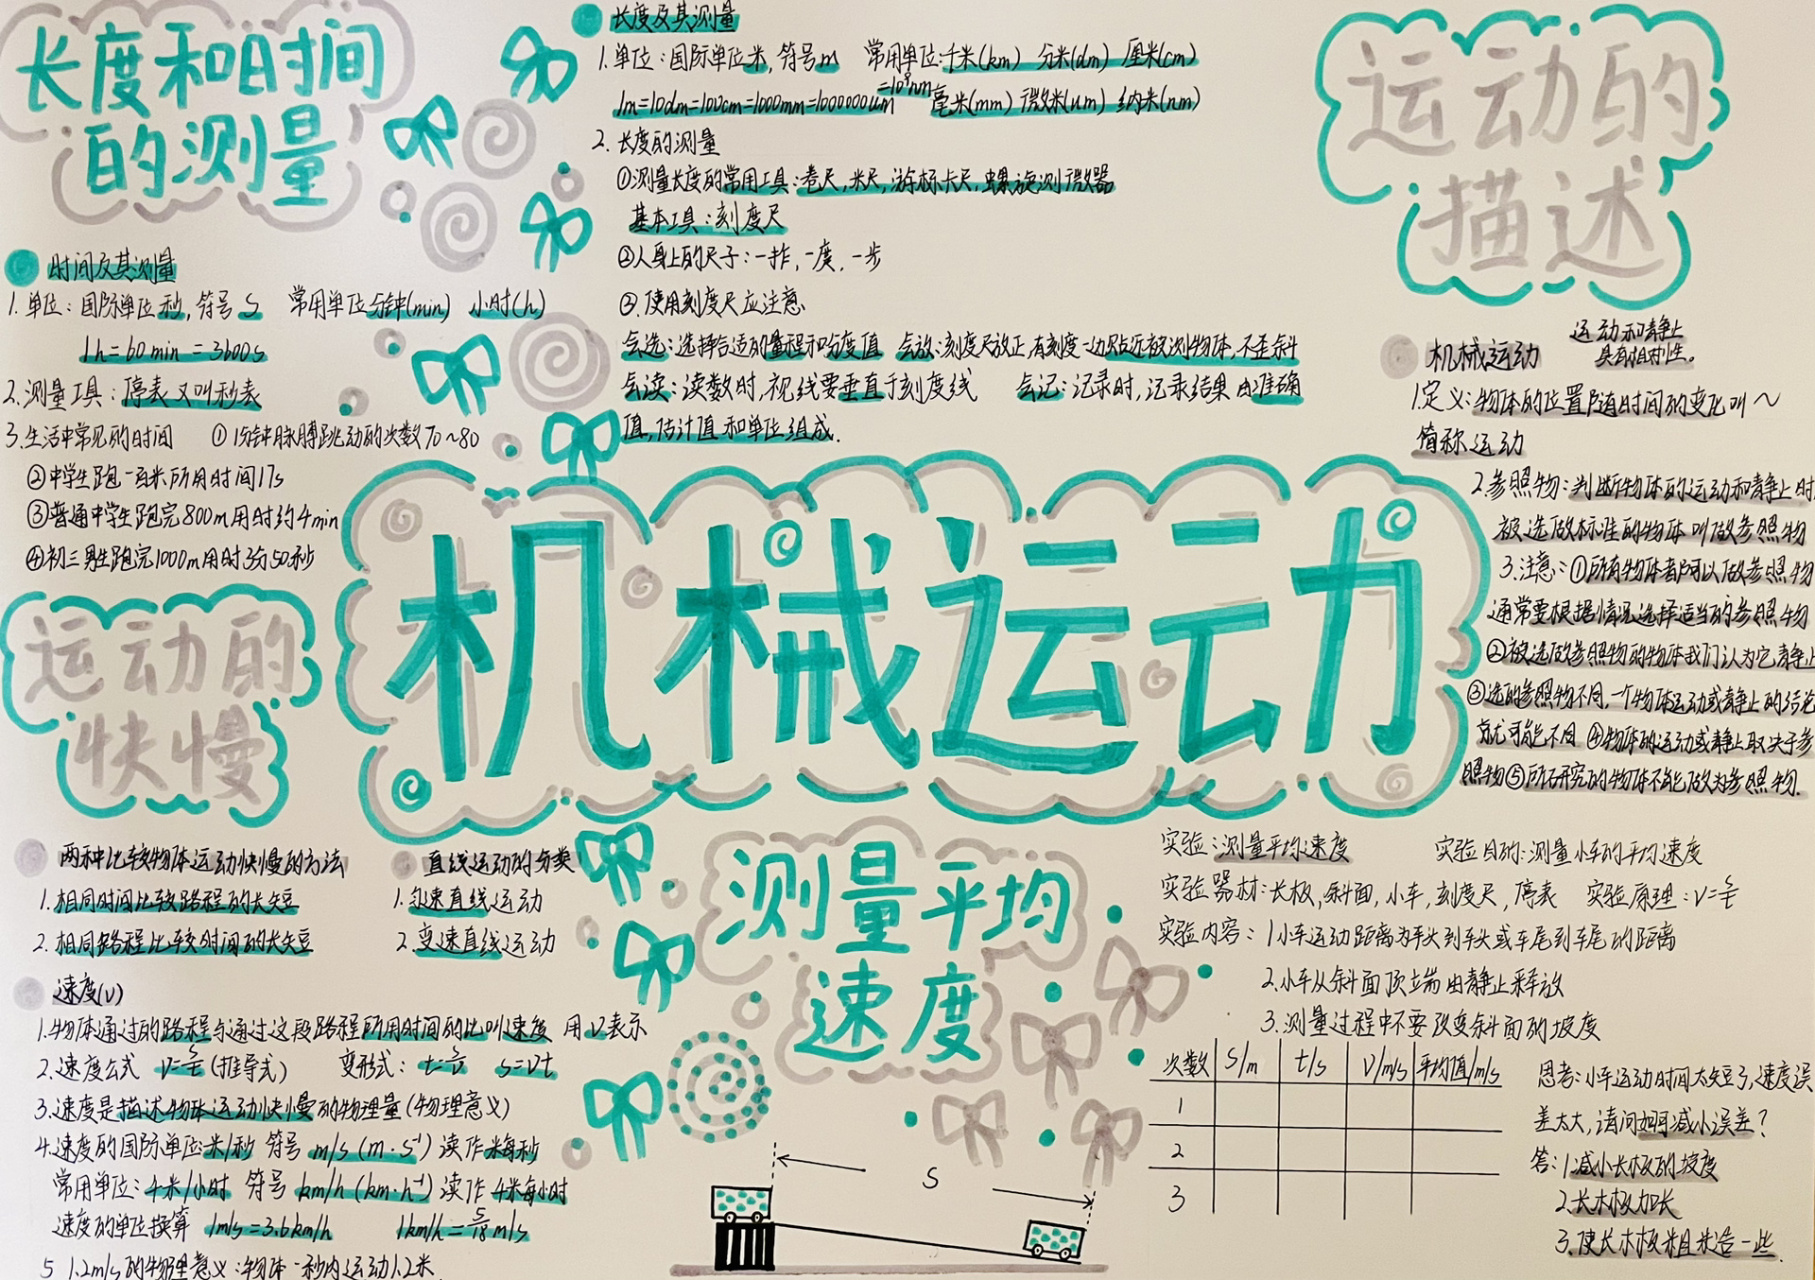 长度和时间
的测量
时间及其测量
1.单位:国际单位秒,符号s 常用单位分钟(min) 小时(h)
1h=60min=3600s
2.测量工具:停表又叫秒表
3.生活中常见的时间 ①1分钟脉膊跳动的次数70~80
②中学生跑一百米所用时间17s
③普通中学生跑完800m用时约4min
④初三男生跑完1000m用时3分50秒
长度及其测量
1.单位:国际单位米,符号m 常用单位:千米(km) 分米(dm) 厘米(cm)
1m=10dm=100cm=1000mm=1000000um=10⁹nm 毫米(mm) 微米(um) 纳米(nm)
2.长度的测量
①测量长度的常用工具:卷尺,米尺,游标卡尺,螺旋测微器
基本工具:刻度尺
②人身上的尺子:一拃,一庹,一步
③.使用刻度尺应注意
会选:选择合适的量程和分度值 会放:刻度尺放正,有刻度一边贴近被测物体,不歪斜
会读:读数时,视线要垂直于刻度线 会记:记录时,记录结果由准确
值,估计值和单位组成.
运动的
描述
机械运动 运动和静止
具有相对性。
1.定义:物体的位置随时间的变化叫~
简称运动
2.参照物:判断物体的运动和静止时
被选做标准的物体叫做参照物
3.注意:①所有物体都可以做参照物
通常要根据情况选择适当的参照物
②被选做参照物的物体我们认为它静止
③选的参照物不同,一个物体运动或静止的结论
就可能不同 ④物体的运动或静止取决于参
照物⑤所研究的物体不能做为参照物.
机械运动
运动的
快慢
两种比较物体运动快慢的方法
1.相同时间比较路程的长短
2.相同路程比较时间的长短
直线运动的分类
1.匀速直线运动
2.变速直线运动
速度(v)
1.物体通过的路程与通过这段路程所用时间的比叫速度 用v表示
2.速度公式 v=s/t (推导式) 变形式: t=s/v s=vt
3.速度是描述物体运动快慢的物理量(物理意义)
4.速度的国际单位米/秒 符号 m/s (m·s⁻¹) 读作米每秒
常用单位:千米/小时 符号 km/h (km·h⁻¹) 读作 千米每小时
速度的单位换算 1m/s=3.6km/h 1km/h=5/18 m/s
5 1.2m/s的物理意义:物体一秒内运动1.2米
测量平均
速度
S
实验:测量平均速度 实验目的:测量小车的平均速度
实验器材:长板,斜面,小车,刻度尺,停表 实验原理:v=s/t
实验内容:1小车运动距离为车头到车头或车尾到车尾的距离
2.小车从斜面顶端由静止释放
3.测量过程中不要改变斜面的坡度
次数 S/m t/s V/m/s 平均值/m/s
1
2
3
思考:小车运动时间太短了,速度误
差太大,请问如何减小误差?
答:1减小长板的坡度
2.长木板加长
3.使长木板粗糙一些